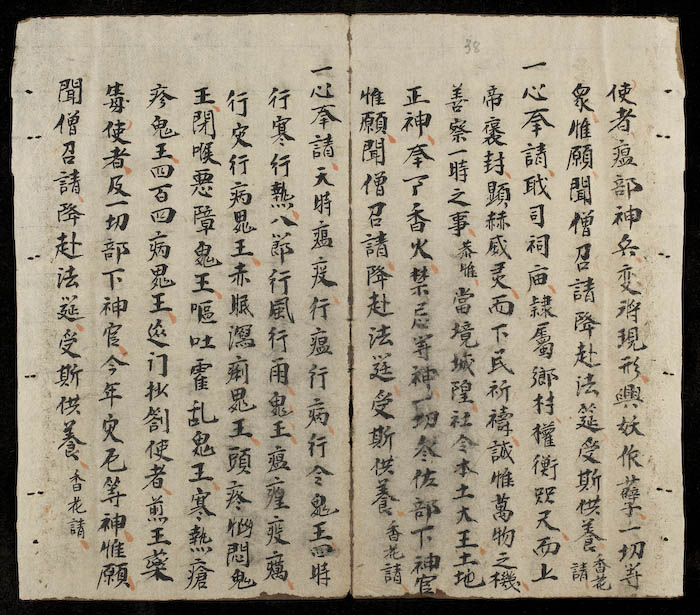 38
使者瘟部神兵变形現形興妖作孽一切等
衆惟願聞僧召請降赴法筵受斯供養香花請
一心奉請耽司祠庙隷屬鄉村權衡咫尺而上
帝褒封顯赫威灵而下民祈禱誠惟萬物之機
善察一時之事恭惟當境城隍社令本土大王土地
正神奉事香火禁忌等神一切参佐部下神官
惟願聞僧召請降赴法筵受斯供養香花請
一心奉請天時瘟疫行瘟行病行令鬼王四時
行寒行熱八節行風行雨鬼王瘟瘽疫癘
行灾行病鬼王赤眼瀉痢鬼王頭疼惱悶鬼
王閉喉悪障鬼王嘔吐霍乱鬼王寒熱瘡
疹鬼王四百四病鬼王巡门抄劄使者煎王藥
毒使者及一切部下神官今年灾厄等神惟願
聞僧召請降赴法筵受斯供養香花請